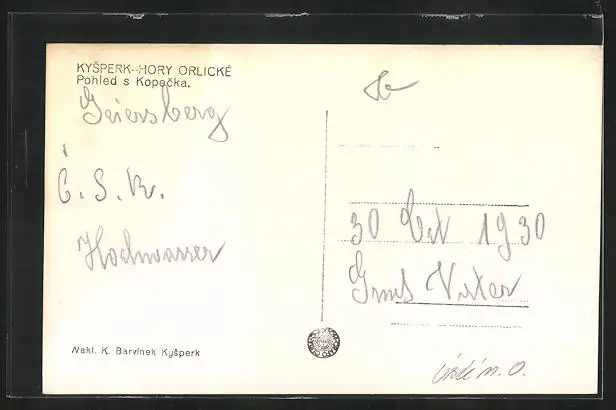 KYŠPERK--HORY ORLICKÉ
Pohled s Kopečka.
Geiersberg
Č. S. R.
Hochwasser
Nakl. K. Barvínek Kyšperk
30 Oct 1930
Ústí n. O.